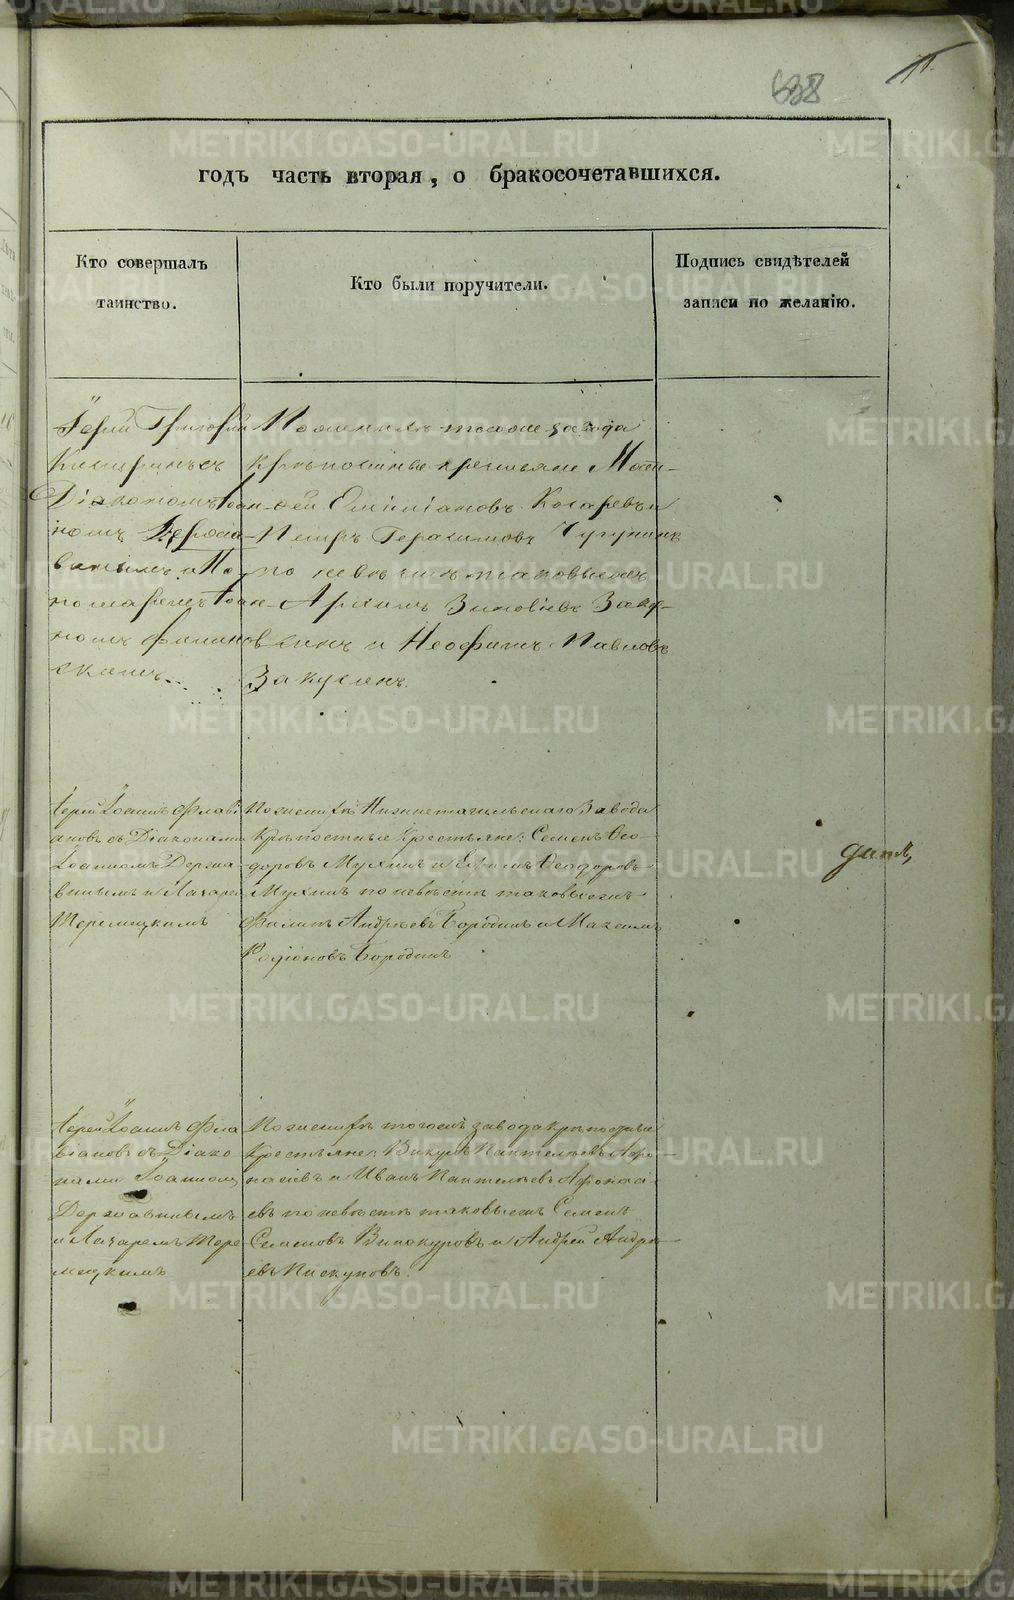 638
11.
годъ часть вторая, о бракосочетавшихся.
Кто совершалъ
таинство.
Кто были поручители.
Подпись свидѣтелей
записи по желанію.
Іерей Григорій
съ
Діакономъ Іоан-
номъ Держа-
винымъ и По-
номаремъ Іоан-
номъ
скимъ.
По женихѣ тогоже завода
крѣпостные крестьяне Мат-
фей Емиліановъ Косаревъ и
Петръ Герасимовъ
по невѣстѣ таковыежъ
Архипъ Зиновіевъ
и Неофитъ Павловъ
Іерей Іоаннъ Флаві
ановъ съ Діаконами
Іоанномъ Держа
винымъ и Лазаремъ
Теремецкимъ
По женихѣ Нижнетагильскаго Завода
Крѣпостные Крестьяне: Семенъ Ѳео-
доровъ Мухинъ и Ефимъ Ѳеодоровъ
Мухинъ по невѣстѣ таковыежъ
Филипъ Андреевъ Бородинъ и Максимъ
Родіоновъ Бородинъ
Іерей Іоаннъ Фла
віановъ съ Діако
нами Іоанномъ
Державинымъ
и Лазаремъ Тере
мецкимъ
По женихѣ тогожъ завода крѣпостные
Крестьяне: Викулъ Пантелѣевъ Афо-
насіевъ и Иванъ Пантелѣевъ Афонаси-
евъ по невѣстѣ таковыежъ Семенъ
Семеновъ Винокуровъ и Андрей Андре-
евъ Пискуновъ.
METRIKI.GASO-URAL.RU